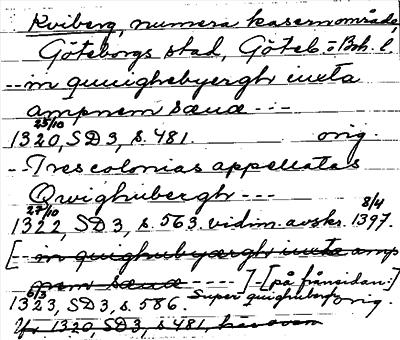 Kviberg, numera kasernområde,
Göteborgs stad, Göteb. o Boh. l.
-- in quuighubyærghr iuxta
ampnem sæuæ ---
25/10
1320, SD 3, s. 481. orig.
-- Tres colonias appellatas
Qwighubergh ---
27/10 8/4
1322, SD 3, s. 563. vidim. avskr. 1397.
[-- in quighubyærghr iuxta amp
nem sæuæ ----] - [på frånsidan:]
6/3 Super quighubergh
1323, SD 3, s. 586. orig.
Jfr 1320, SD 3, s. 481, här ovan